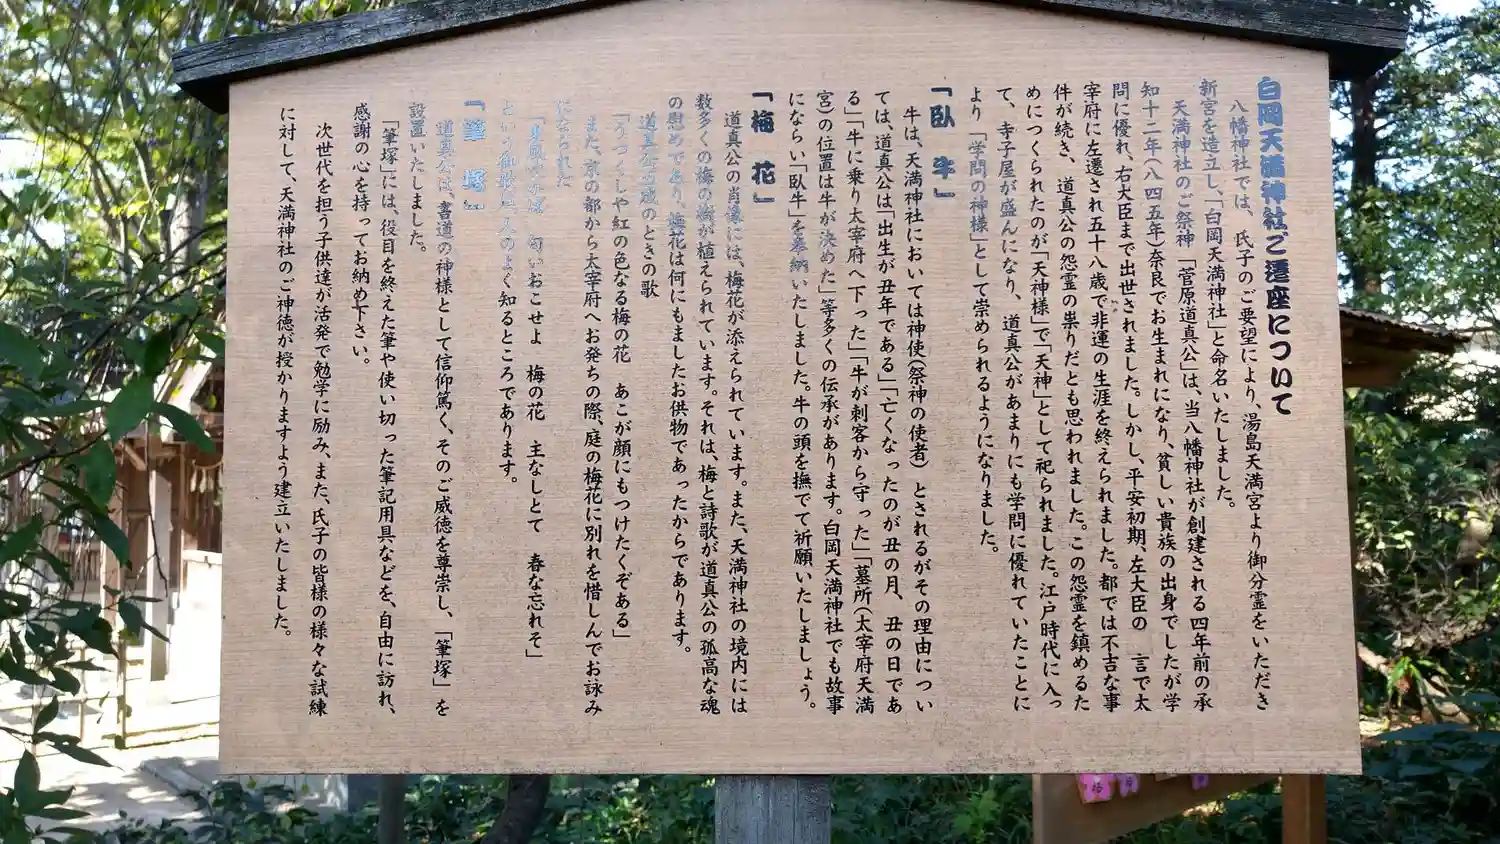 白岡天満神社ご遷座について
八幡神社では、氏子のご要望により、湯島天満宮より御分霊をいただき
新宮を造立し、「白岡天満神社」と命名いたしました。
天満神社のご祭神「菅原道真公」は、当八幡神社が創建される四年前の承
知十二年(八四五年)奈良でお生まれになり、貧しい貴族の出身でしたが学
問に優れ、右大臣まで出世されました。しかし、平安初期、左大臣の 言で太
宰府に左遷され五十八歳で非運の生涯を終えられました。都では不吉な事
件が続き、道真公の怨霊の祟りだとも思われました。この怨霊を鎮めるた
めにつくられたのが「天神様」で「天神」として祀られました。江戸時代に入っ
て、寺子屋が盛んになり、道真公があまりにも学問に優れていたことに
より「学問の神様」として崇められるようになりました。
「臥 牛」
牛は、天満神社においては神使(祭神の使者)とされるがその理由につい
ては、道真公は「出生が丑年である」「亡くなったのが丑の月、丑の日であ
る」「牛に乗り太宰府へ下った」「牛が刺客から守った」「墓所(太宰府天満
宮)の位置は牛が決めた」等多くの伝承があります。白岡天満神社でも故事
にならい「臥牛」を奉納いたしました。牛の頭を撫でて祈願いたしましょう。
「梅 花」
道真公の肖像には、梅花が添えられています。また、天満神社の境内には
数多くの梅の樹が植えられています。それは、梅と詩歌が道真公の孤高な魂
の慰めであり、梅花は何にもましたお供物であったからであります。
道真公五歳のときの歌
「うつくしや紅の色なる梅の花 あこが顔にもつけたくぞある」
また、京の都から太宰府へお発ちの際、庭の梅花に別れを惜しんでお詠み
になられた
「東風ふかば 匂いおこせよ 梅の花 主なしとて 春な忘れそ」
という御歌は人のよく知るところであります。
「筆 塚」
道真公は、書道の神様として信仰篤く、そのご威徳を尊崇し、「筆塚」を
設置いたしました。
「筆塚」には、役目を終えた筆や使い切った筆記用具などを、自由に訪れ、
感謝の心を持ってお納め下さい。
次世代を担う子供達が活発で勉学に励み、また、氏子の皆様の様々な試練
に対して、天満神社のご神徳が授かりますよう建立いたしました。